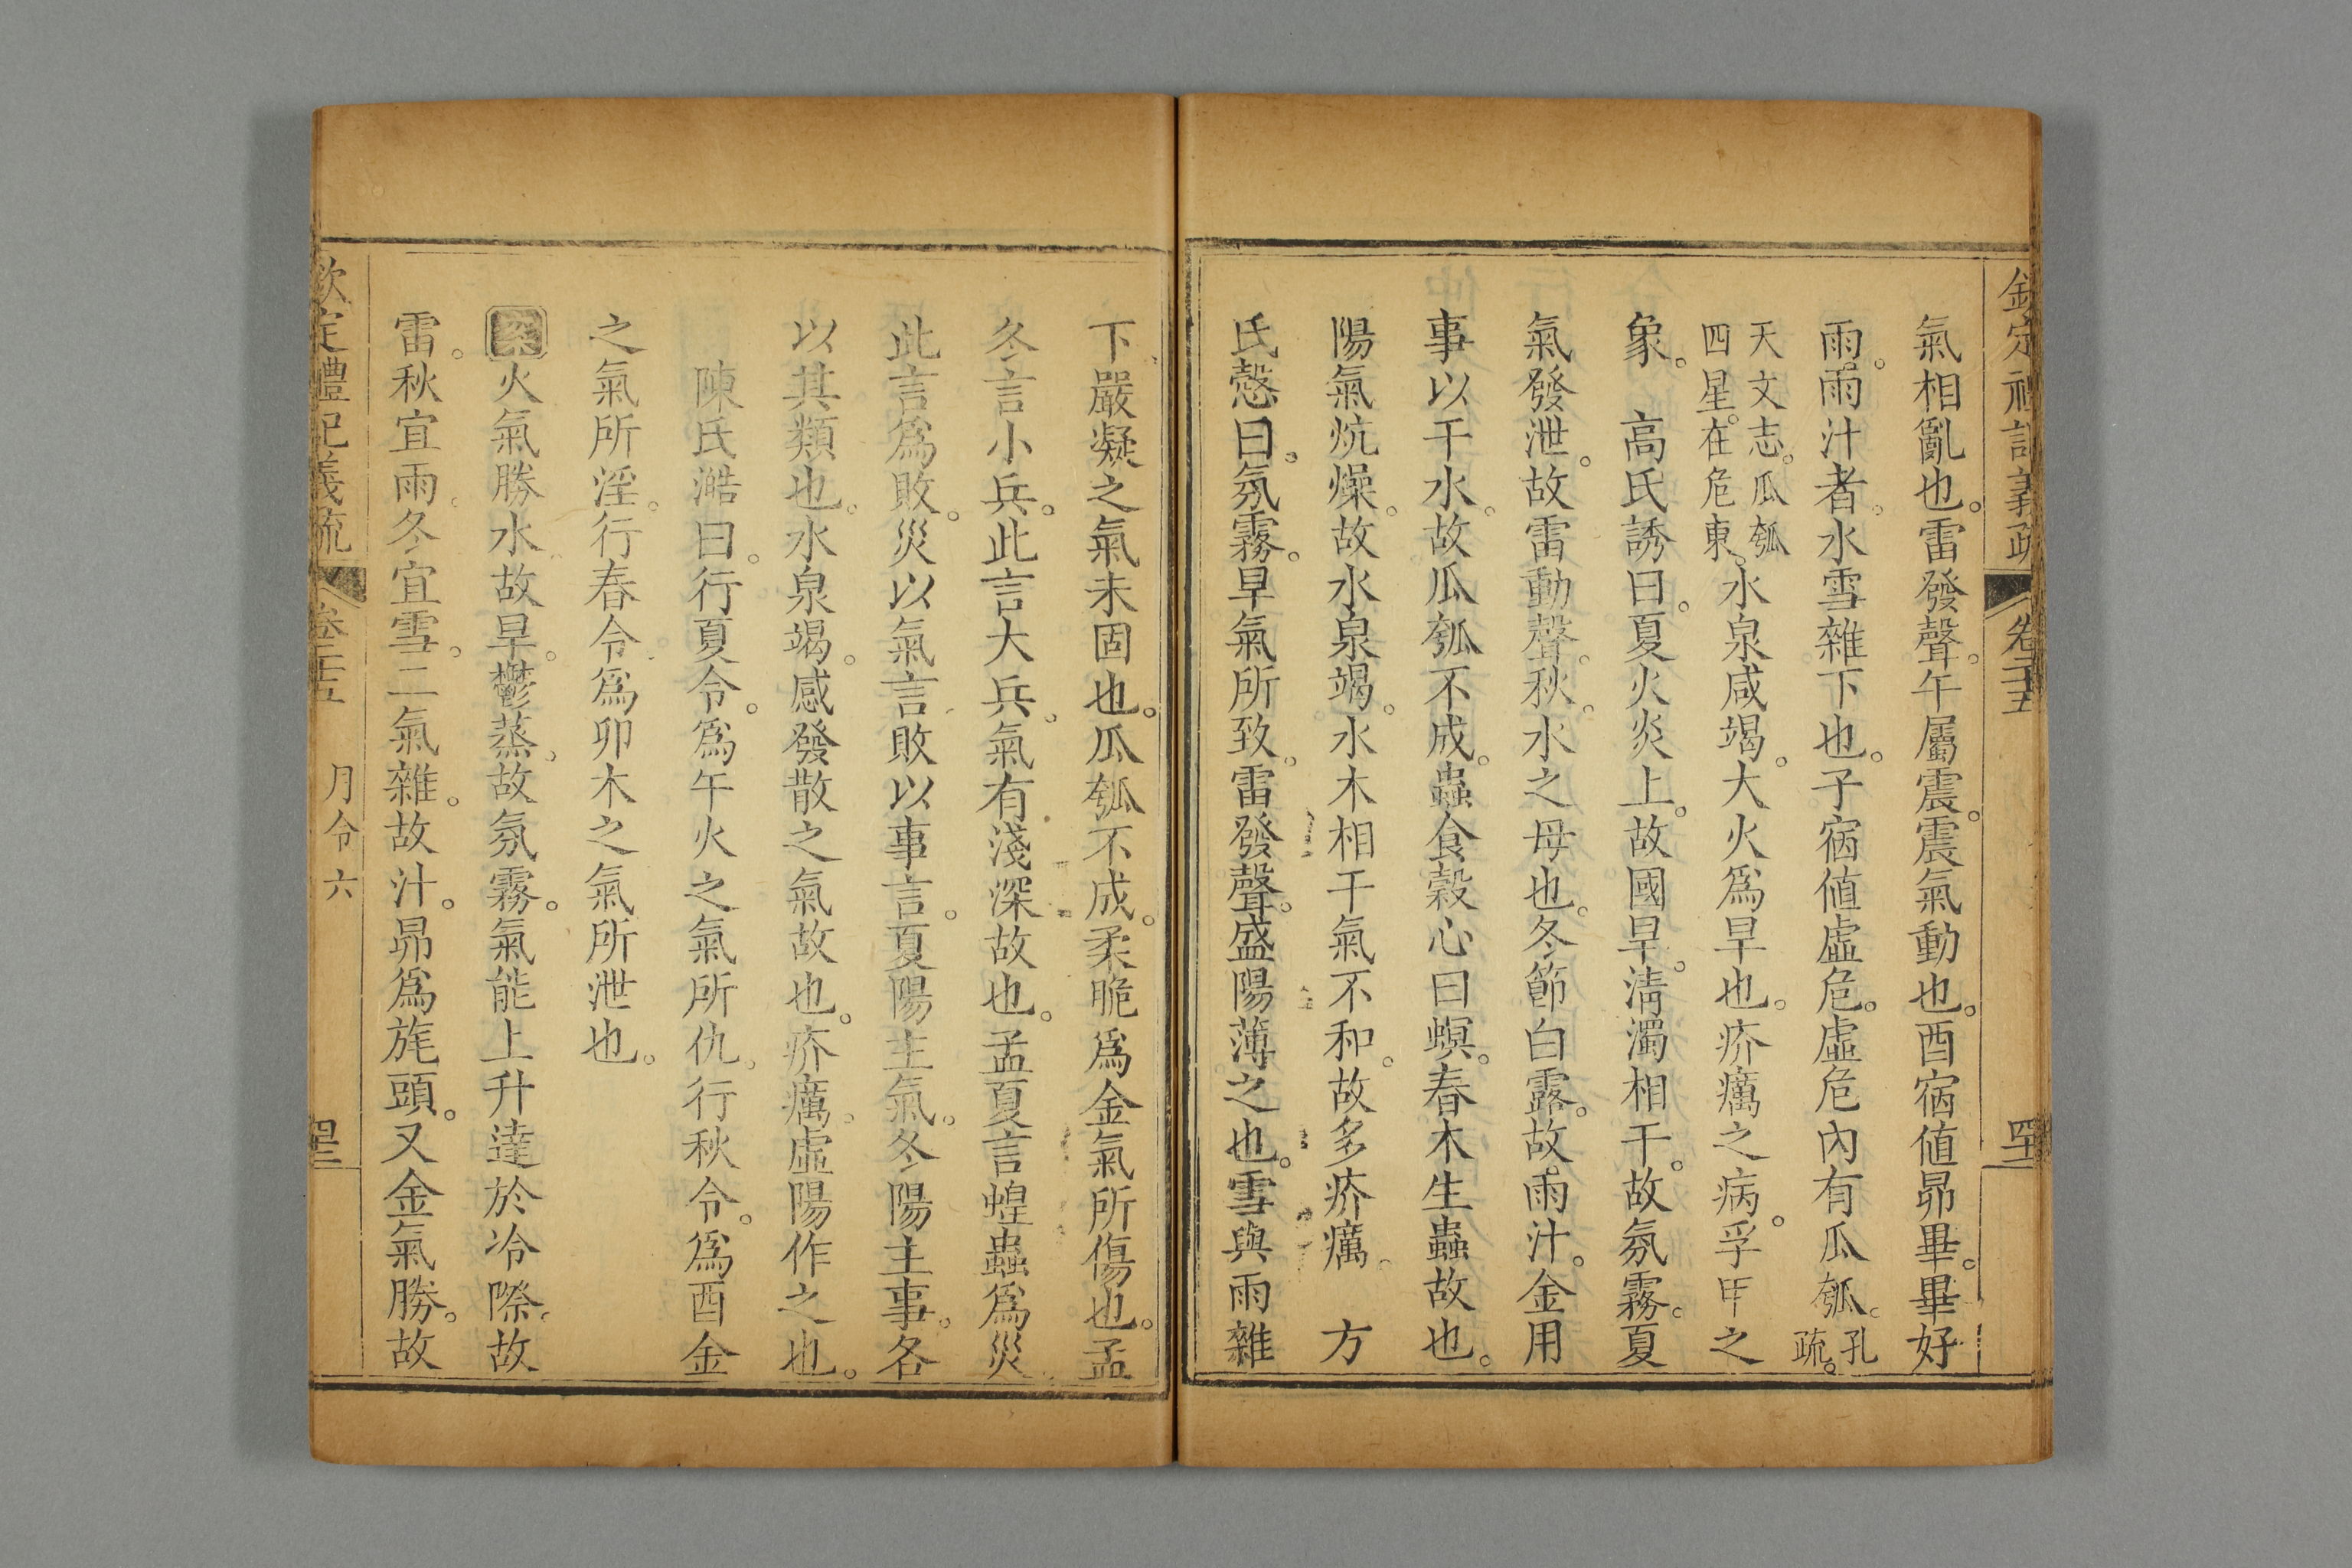 欽定禮記義疏 卷二十五 四十二
氣相亂也。雷發聲。午屬震。震氣動也。酉宿値昴畢。畢好
雨。雨汁者。水雪雜下也。子宿値虛危。虛危內有瓜瓠。孔疏。
天文志。瓜瓠四星。在危東。水泉咸竭。大火爲旱也。疥癘之病。孚甲之
象。 高氏誘曰。夏火炎上。故國旱。淸濁相干。故氛霧。夏
氣發泄。故雷動聲。秋。水之母也。冬節白露。故雨汁。金用
事以干水。故瓜瓠不成。蟲食穀心曰螟。春木生蟲故也。
陽氣炕燥。故水泉竭。水木相干氣不和。故多疥癘。 方
氏慤曰。氛霧。旱氣所致。雷發聲。盛陽薄之也。雪與雨雜
下。嚴凝之氣未固也。瓜瓠不成。柔脆爲金氣所傷也。孟
冬言小兵。此言大兵。氣有淺深故也。孟夏言蝗蟲爲災
此言爲敗。災以氣言。敗以事言。夏陽主氣。冬陽主事。各
以其類也。水泉竭。感發散之氣故也。疥癘。虛陽作之也。
陳氏澔曰。行夏令。爲午火之氣所仇。行秋令。爲酉金
之氣所淫。行春令。爲卯木之氣所泄也。
案火氣勝水。故旱。鬱蒸。故氛霧。氣能上升達於冷際。故
雷。秋宜雨。冬宜雪。二氣雜。故汁。昴爲旄頭。又金氣勝。故
欽定禮記義疏 卷二十五 月令六 四十三